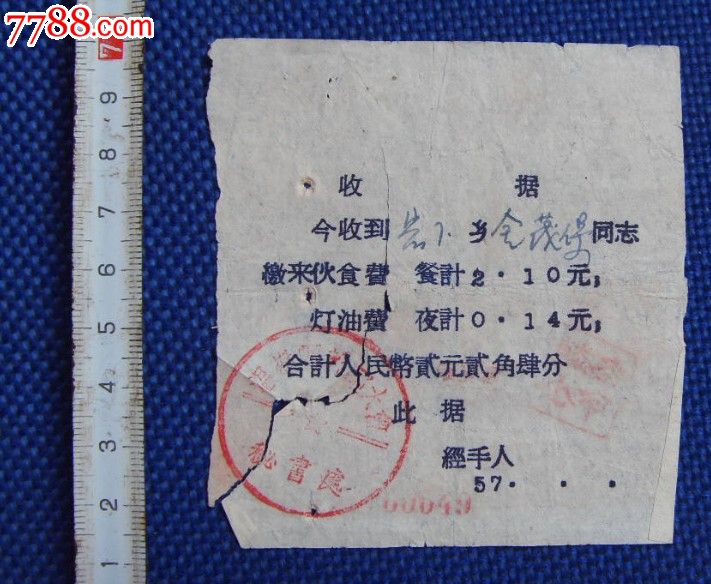 7788.com
收 据
今收到岩下乡全茂得同志
缴来伙食費 餐計2·10元;
灯油費 夜計0·14元;
合計人民幣貳元貳角肆分
此 据
經手人
57. . .
秘書處
00049
7
9
8
7
6
5
4
3
2
1